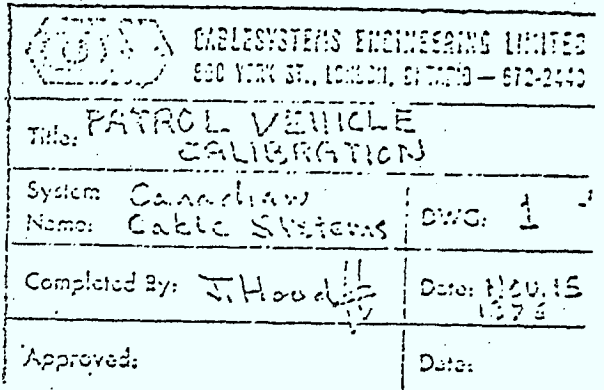 CABLESYSTEMS ENGINEERING LIMITED
YORK ST., LONDON, ONTARIO — 672-2440
Title: PATROL VEHICLE
CALIBRATION
System Canadian
Name: Cable Systems
DWG: 1
Completed By:
Date: NOV. 15
Approved:
Date: